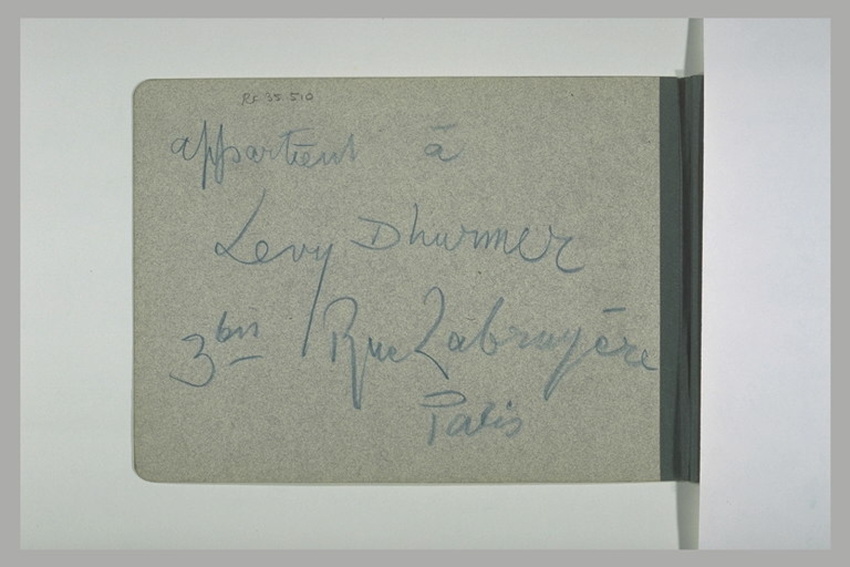 RF 35.510
appartient à
Levy Dhurmer
3 bis Rue Labruyère
Paris